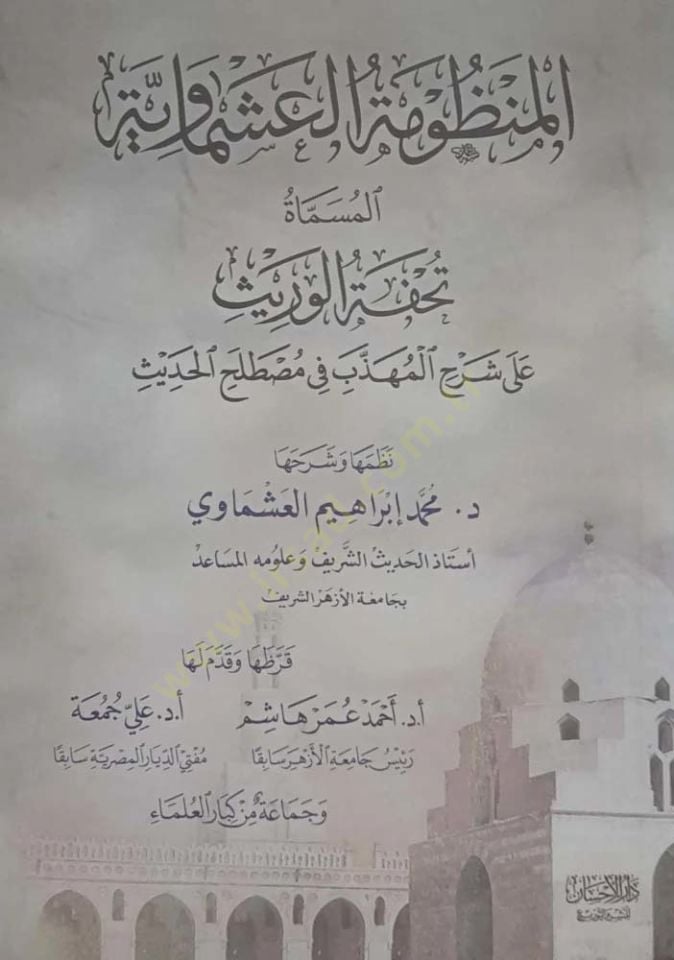 المَنْظُومَةُ العَشْمَاوِيَّة
المُسَمَّاةُ
تُحْفَةُ الوَرِيْثِ
عَلَى شَرْحِ المُهَذَّبِ فِي مُصْطَلَحِ الحَدِيْثِ
نَظَمَهَا وَشَرَحَهَا
د. مُحَمَّد إِبْرَاهِيم العَشْمَاوِي
أستاذ الحديث الشريف وعلومه المساعد
بجامعة الأزهر الشريف
قَرَّظَهَا وَقَدَّمَ لَهَا
أ.د. أَحْمَدْ عُمَرْ هَاشِمْ أ.د. عَلِيّ جُمُعَة
رَئِيْسُ جَامِعَةِ الأَزْهَرِ سَابِقًا مُفْتِي الدِّيَارِ المِصْرِيَّةِ سَابِقًا
وَجَمَاعَةٌ مِنْ كِبَارِ العُلَمَاءِ
دَارُ الإِحْسَانِ
للنشر والتوزيع